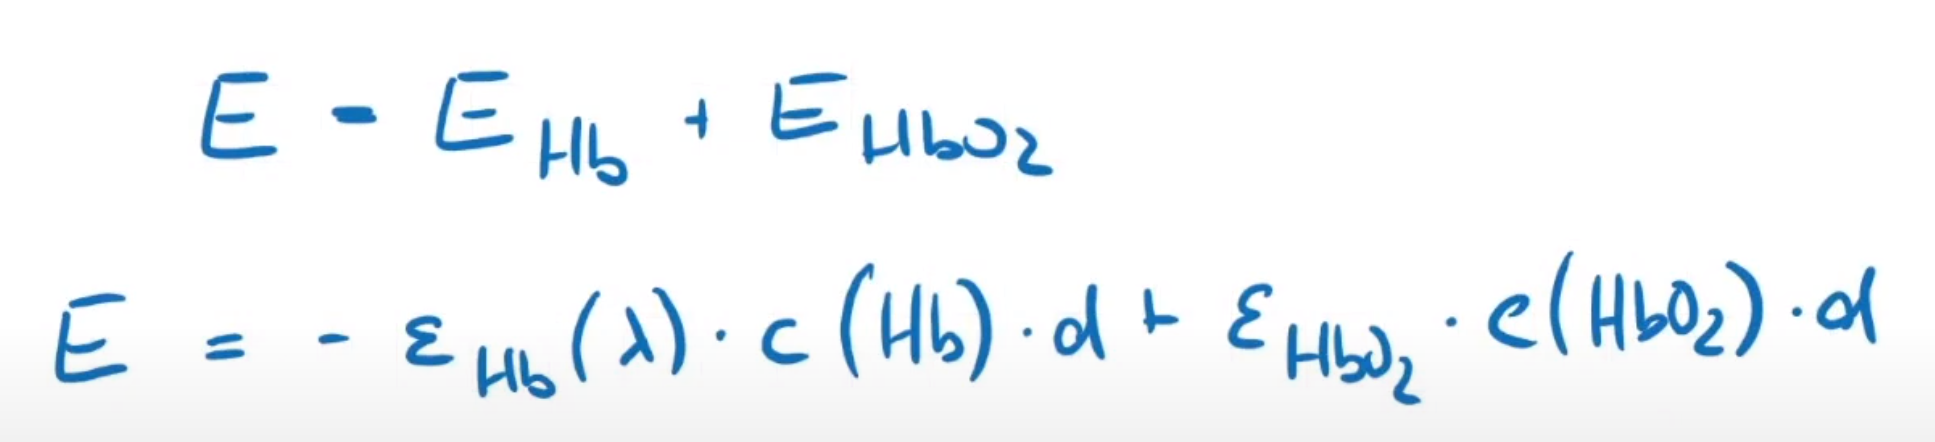 E = E_Hb + E_HbO2
E = - ε_Hb (λ) · c (Hb) · d + ε_HbO2 · c(HbO2) · d